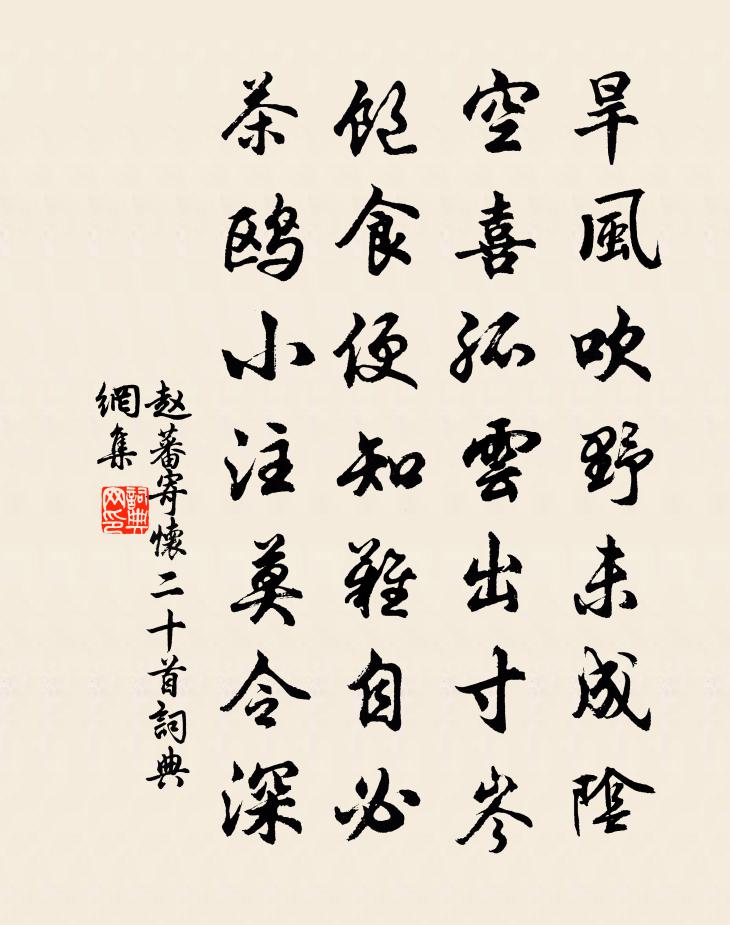 旱風吹野未成陰
空喜孤雲出寸岑
飽食便知難自必
茶鸥小注莫令深
赵蕃寄懷二十首詞典
網集
詞典
网印